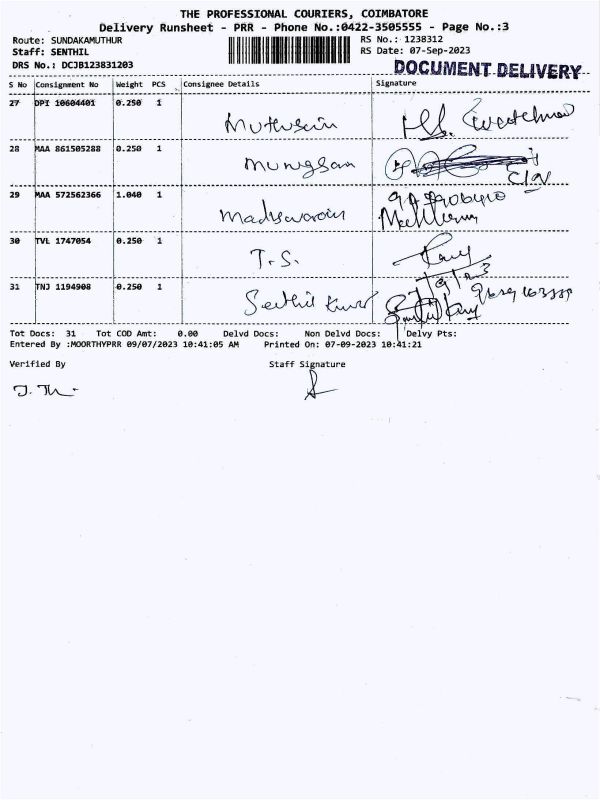 THE PROFESSIONAL COURIERS, COIMBATORE
Delivery Runsheet - PRR - Phone No.:0422-3505555 - Page No.:3
Route: SUNDAKAMUTHUR RS No.: 1238312
Staff: SENTHIL RS Date: 07-Sep-2023
DRS No.: DCJB123831203 DOCUMENT DELIVERY
S No Consignment No Weight PCS Consignee Details Signature
27 DPI 10604401 0.250 1
28 MAA 861505288 0.250 1 Murugsan
29 MAA 572562366 1.040 1
30 TVL 1747054 0.250 1 T.S.
31 TNJ 1194908 0.250 1 Senthil Kumar
Tot Docs: 31 Tot COD Amt: 0.00 Delvd Docs: Non Delvd Docs: Delvy Pts:
Entered By :MOORTHYPRR 09/07/2023 10:41:05 AM Printed On: 07-09-2023 10:41:21
Verified By Staff Signature